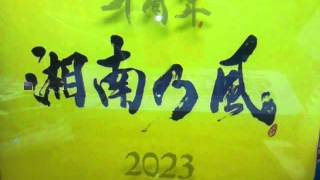 湘南乃風
2023